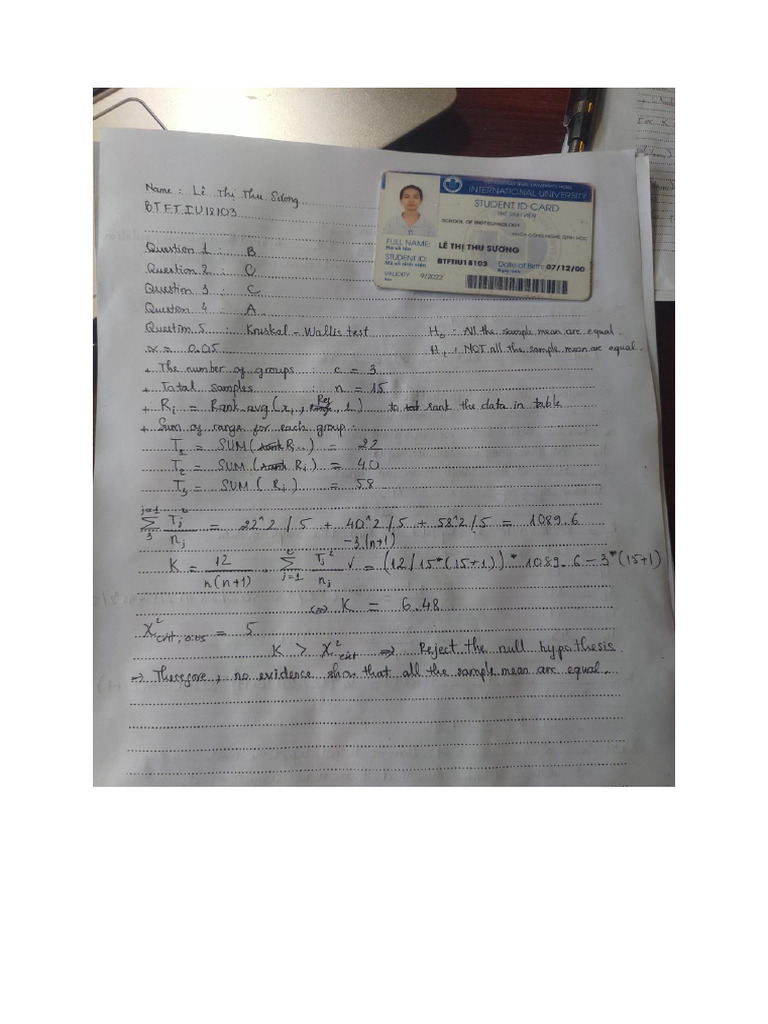 Name : Lê Thị Thu Sương
BTFTIU18103
INTERNATIONAL UNIVERSITY
STUDENT ID CARD
THẺ SINH VIÊN
SCHOOL OF BIOTECHNOLOGY
KHOA CÔNG NGHỆ SINH HỌC
FULL NAME: LÊ THỊ THU SƯƠNG
Họ và tên
STUDENT ID: BTFTIU18103 Date of Birth: 07/12/00
Mã số sinh viên Ngày sinh
VALIDITY 9/2022
Question 1 : B
Question 2 : C
Question 3 : C
Question 4 : A
Question 5 : Kruskal - Wallis test H0 : All the sample mean are equal.
α = 0.05 H1 : NOT all the sample mean are equal.
+ The number of groups : c = 3
+ Total samples : n = 15
+ Ri = Rank.avg (xi, Ref, 1) to rank the data in table
+ Sum of range for each group :
T1 = SUM ( R... ) = 22
T2 = SUM ( Ri ) = 40
T3 = SUM ( Ri ) = 58
j=1
∑ Tj² / nj = 22^2 / 5 + 40^2 / 5 + 58^2 / 5 = 1089.6
3
-3(n+1)
K = 12 / n(n+1) . ∑ j=1 c Tj² / nj √ = (12 / 15*(15+1)) * 1089.6 - 3*(15+1)
⇔ K = 6.48
X² crit, 0.05 = 5
K > X² crit ⇒ Reject the null hypothesis
⇒ Therefore, no evidence show that all the sample mean are equal.